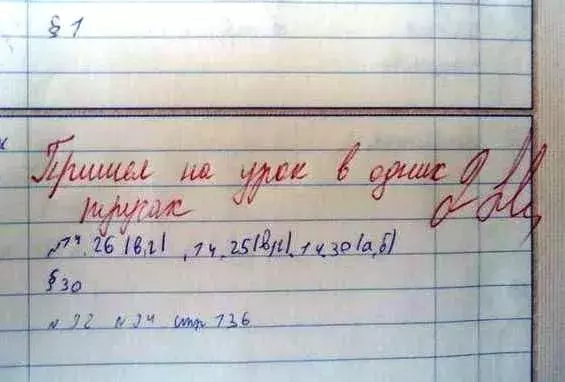 § 1
Пришел на урок в одних
трусах
№14.26(в,г), 14.25(в,г), 14.30(а,б)
§30
№ 92 № 94 стр 136